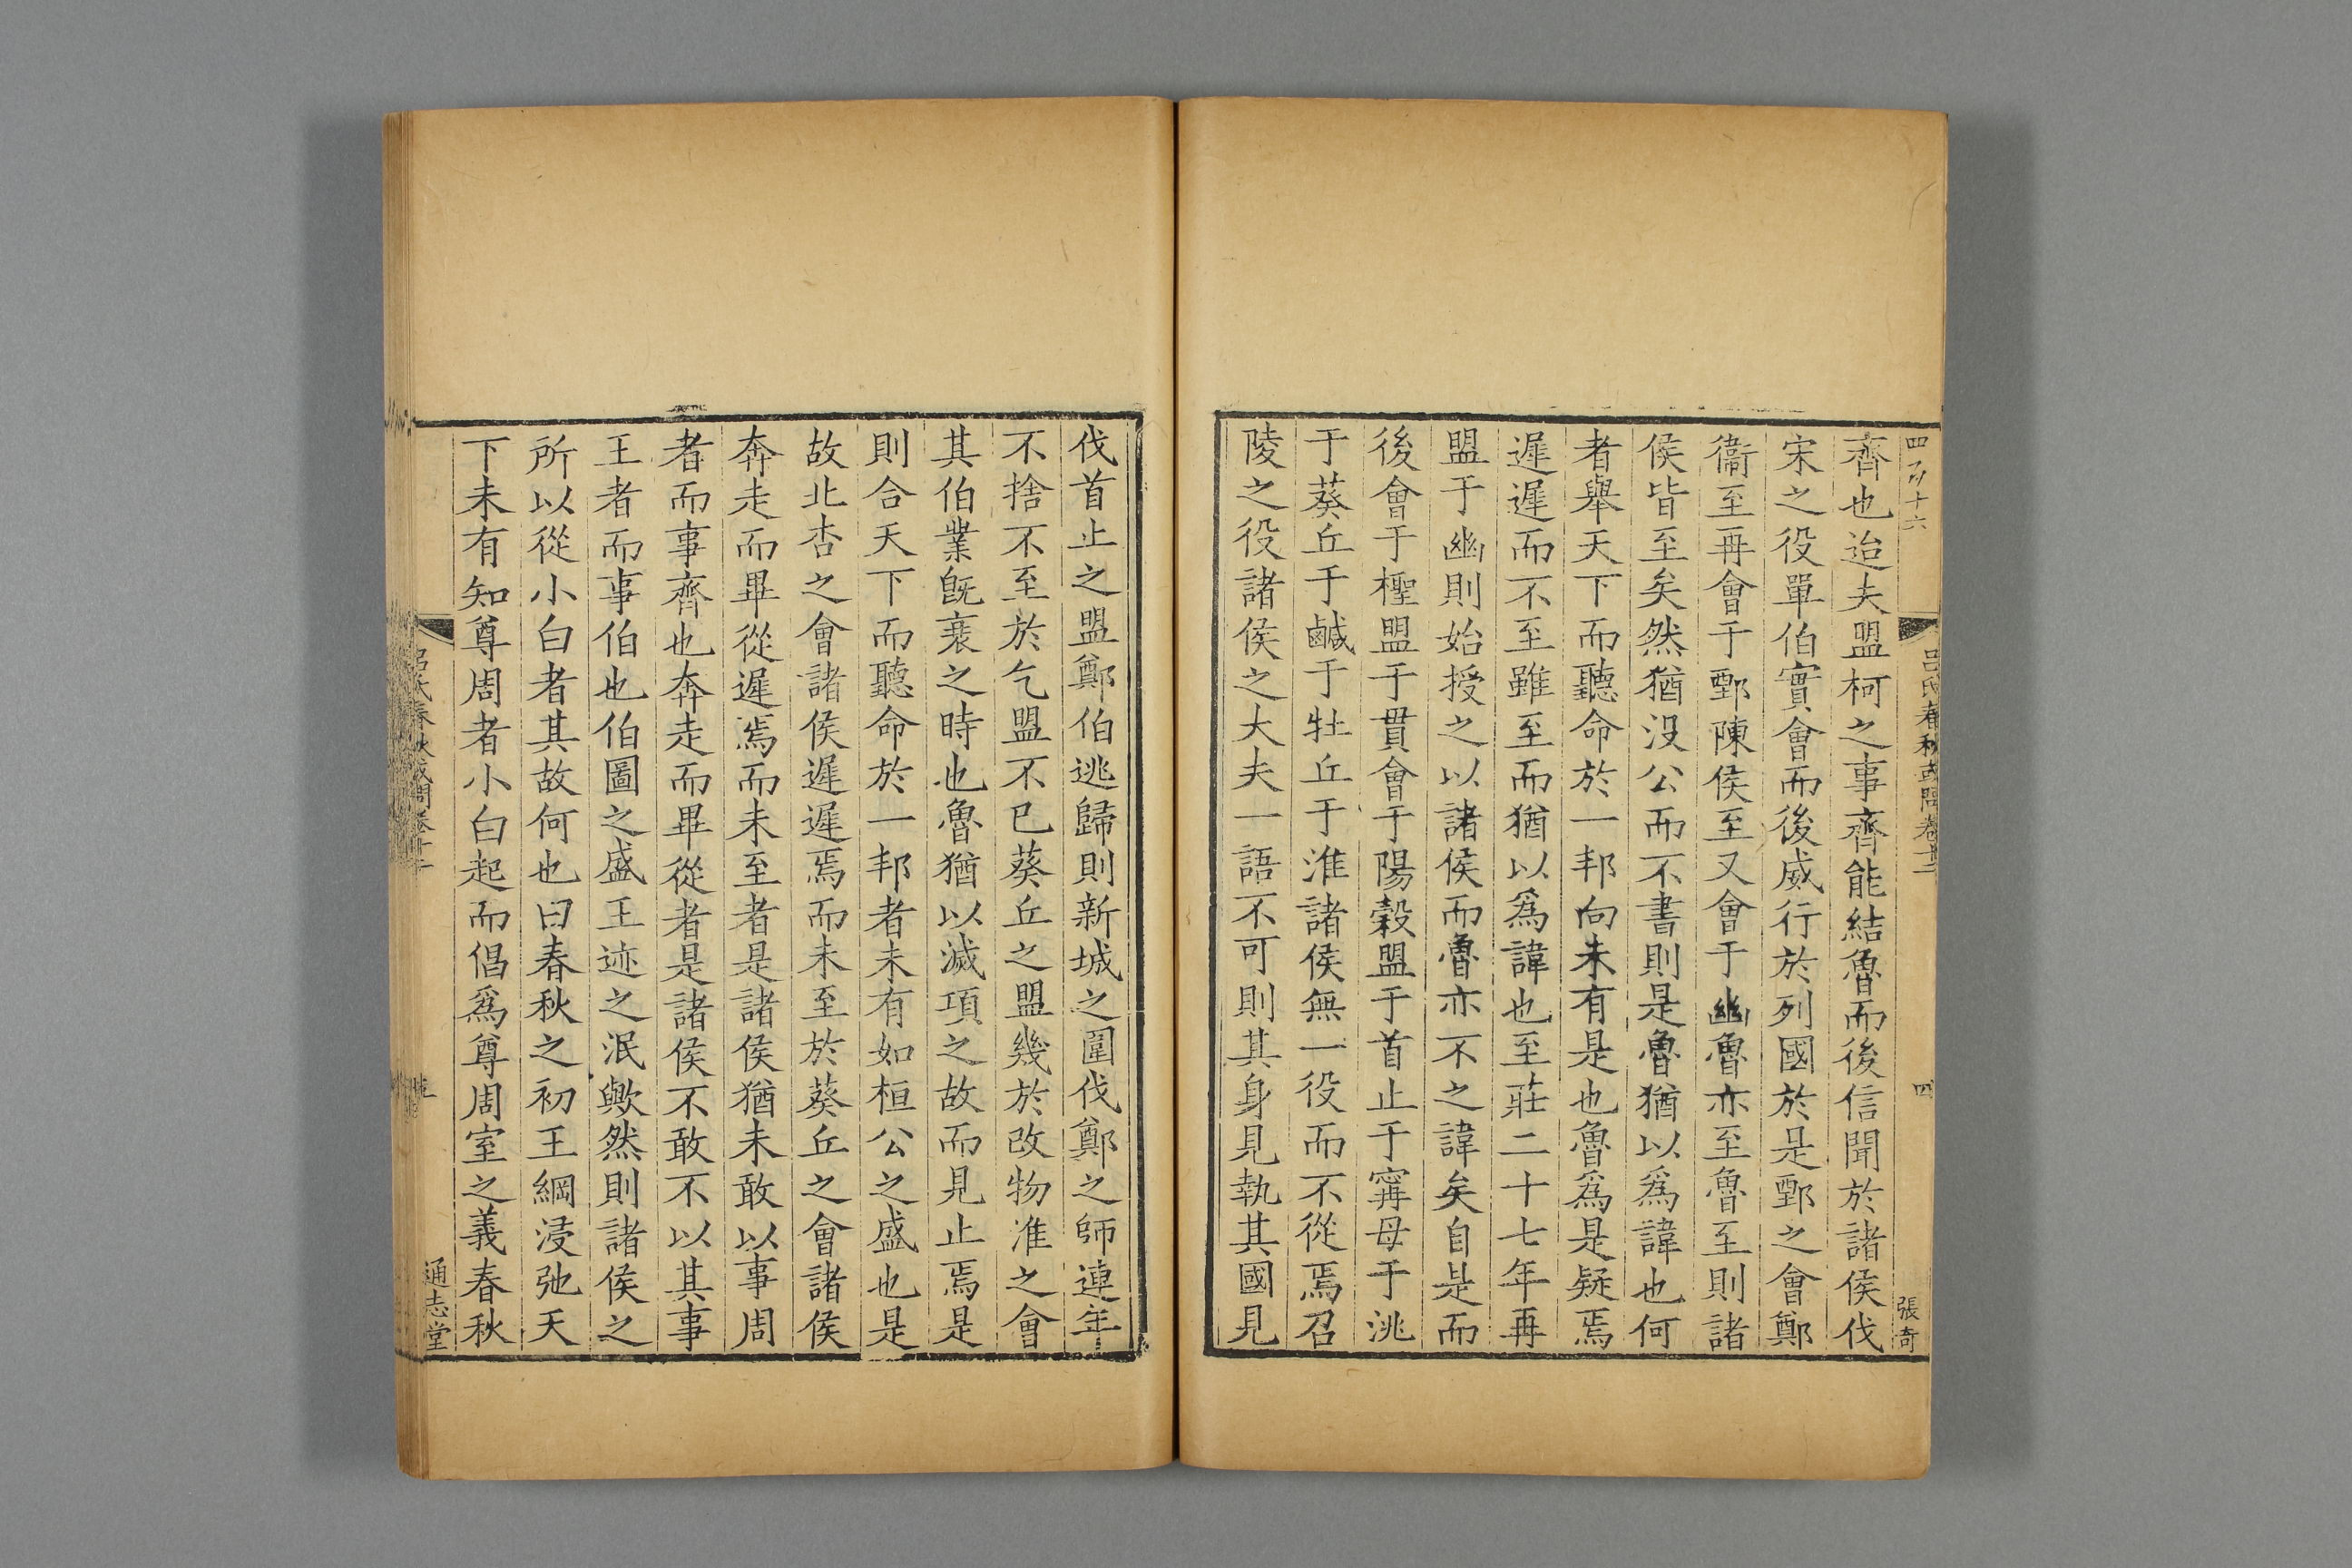 四百十六
呂氏春秋或問卷十二
四
張奇
齊也迨夫盟柯之事齊能結魯而後信聞於諸侯伐
宋之役單伯實會而後威行於列國於是鄄之會鄭
衞至再會于鄄陳侯至又會于幽魯亦至魯至則諸
侯皆至矣然猶没公而不書則是魯猶以爲諱也何
者舉天下而聽命於一邦向未有是也魯爲是疑焉
遲遲而不至雖至而猶以爲諱也至莊二十七年再
盟于幽則始授之以諸侯而魯亦不之諱矣自是而
後會于檉盟于貫會于陽穀盟于首止于寗母于洮
于葵丘于鹹于牡丘于淮諸侯無一役而不從焉召
陵之役諸侯之大夫一語不可則其身見執其國見
伐首止之盟鄭伯逃歸則新城之圍伐鄭之師連年
不捨不至於乞盟不已葵丘之盟幾於改物淮之會
其伯業旣衰之時也魯猶以滅項之故而見止焉是
則合天下而聽命於一邦者未有如桓公之盛也是
故北杏之會諸侯遲遲焉而未至於葵丘之會諸侯
奔走而畢從遲焉而未至者是諸侯猶未敢以事周
者而事齊也奔走而畢從者是諸侯不敢不以其事
王者而事伯也伯圖之盛王迹之泯歟然則諸侯之
所以從小白者其故何也曰春秋之初王綱浸弛天
下未有知尊周者小白起而倡爲尊周室之義春秋
呂氏春秋或問卷十二
通志堂